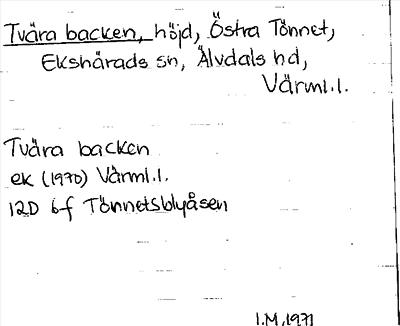 Tvära backen, höjd, Östra Tönnet,
Ekshärads sn, Älvdals hd,
Värml.l.
Tvära backen
ek (1970) Värml.l.
12D 6f Tönnetsblyåsen
I.M. 1971